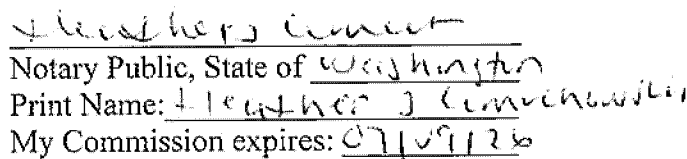 Heather J
Notary Public, State of Washington
Print Name: Heather J
My Commission expires: 07/09/26